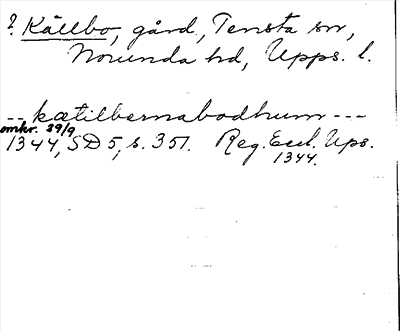 ? Källbo, gård, Tensta sn,
Norunda hd, Upps. l.
-- kætilbernabodhum ---
omkr. 29/9
1344, SD 5, s. 351. Reg. Eccl. Ups.
1344.